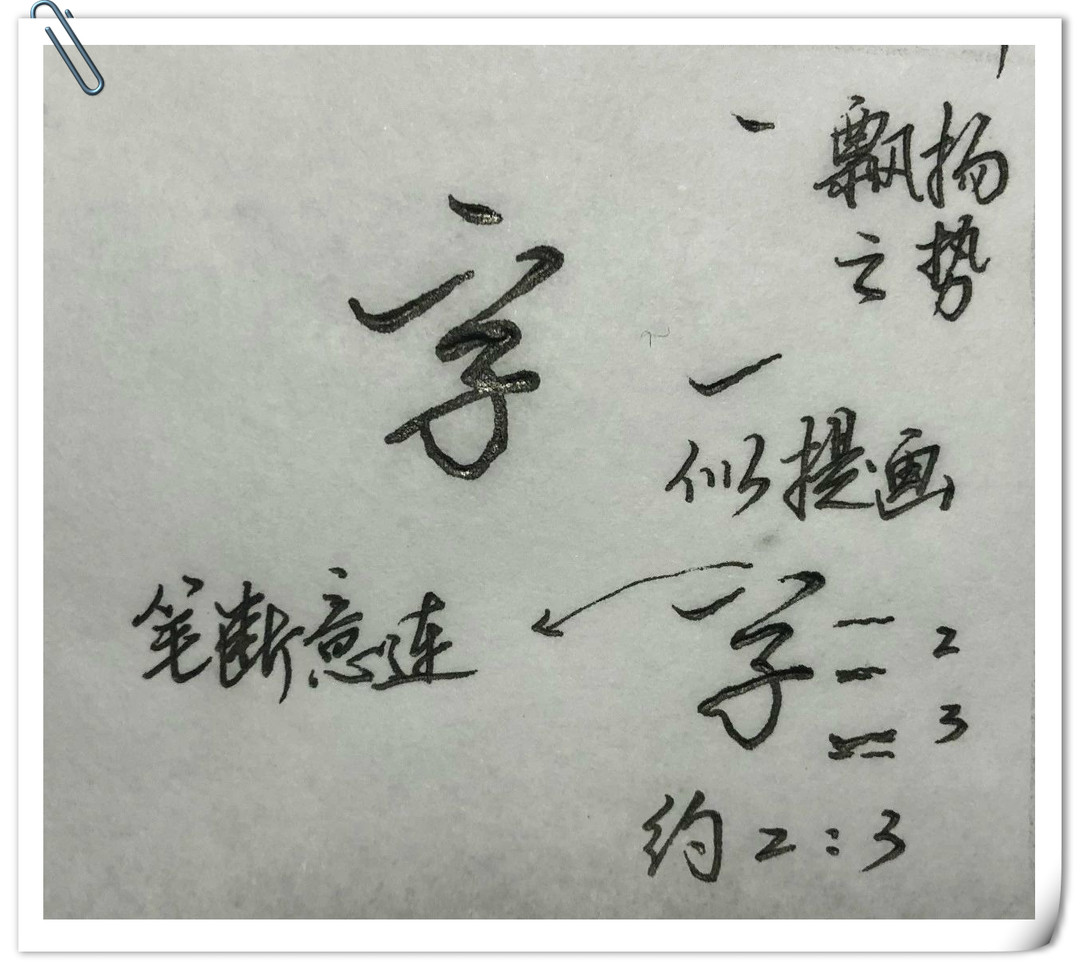 字
飘扬
之势
似提画
笔断意连
字
2
3
约2:3